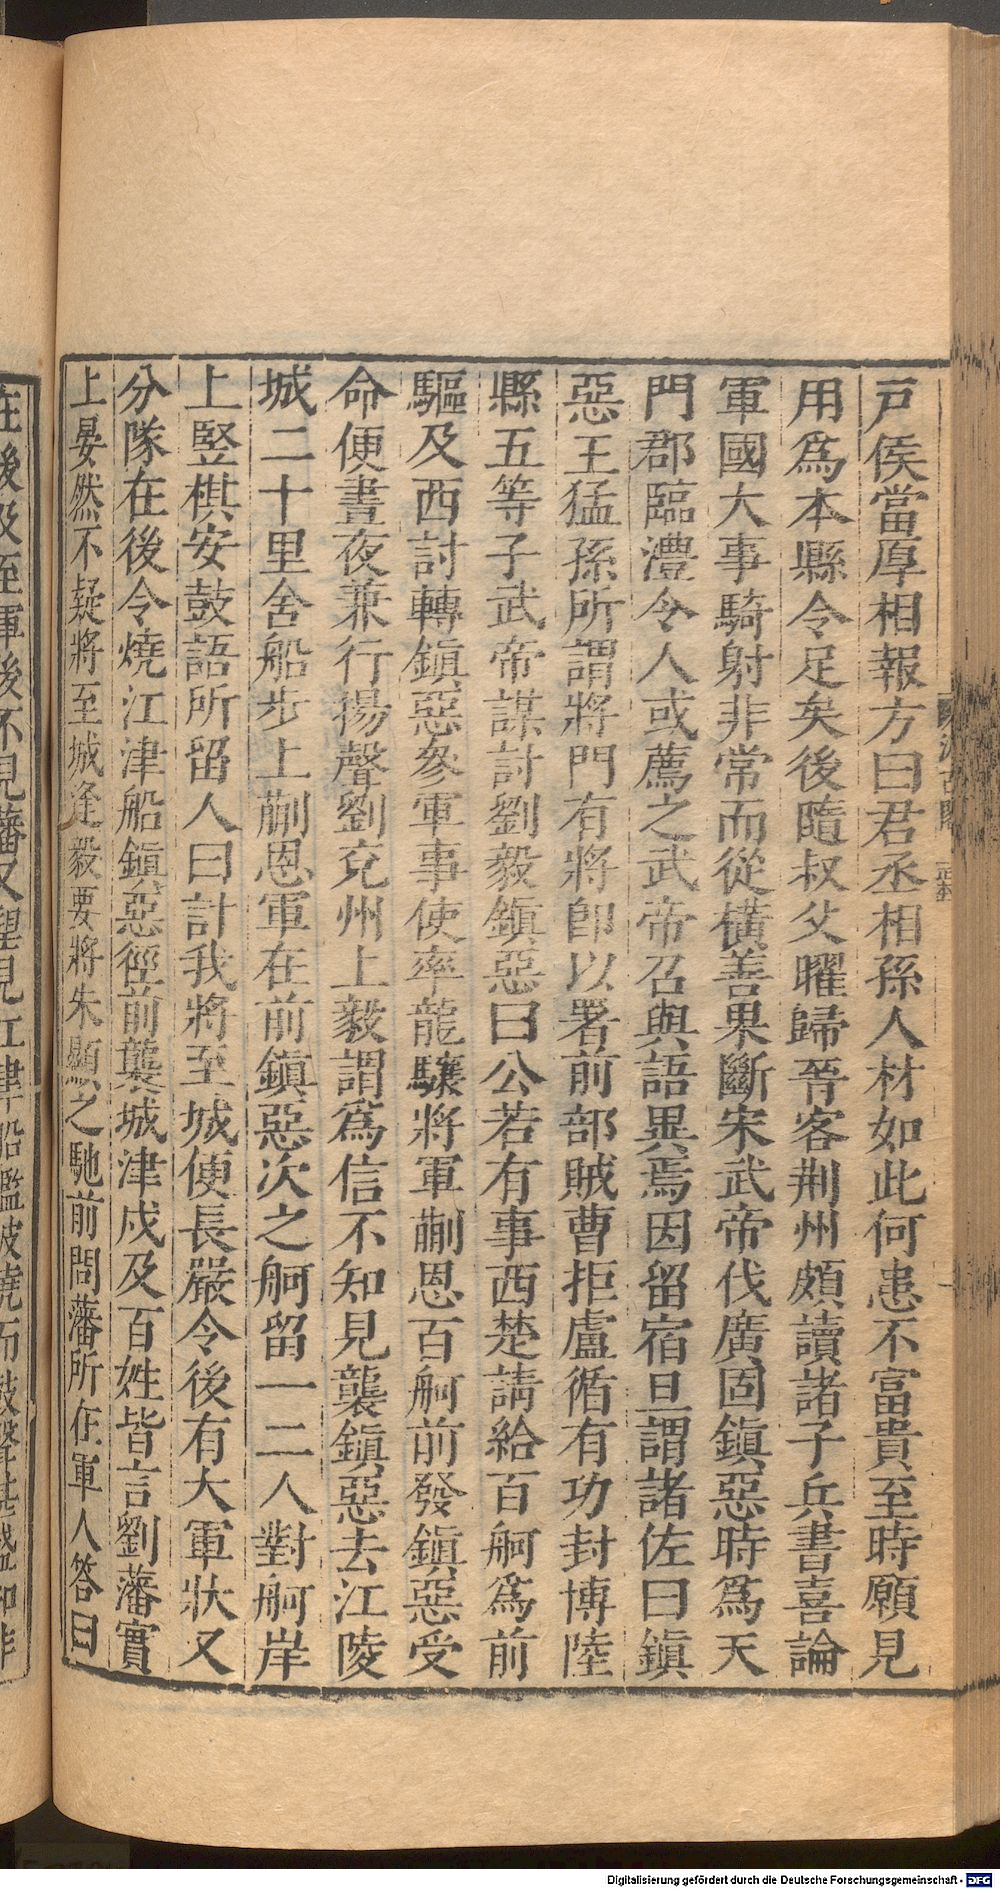 戸侯當厚相報方曰君丞相孫人材如此何患不富貴至時願見
用爲本縣令足矣後隨叔父曜歸晉客荆州頗讀諸子兵書喜論
軍國大事騎射非常而從橫善果斷宋武帝伐廣固鎮惡時爲天
門郡臨澧令人或薦之武帝召與語異焉因留宿旦謂諸佐曰鎮
惡王猛孫所謂將門有將卽以署前部賊曹拒盧循有功封博陸
縣五等子武帝謀討劉毅鎮惡曰公若有事西楚請給百舸爲前
驅及西討轉鎮惡參軍事使率龍驤將軍蒯恩百舸前發鎮惡受
命便晝夜兼行揚聲劉兗州上毅謂爲信不知見襲鎮惡去江陵
城二十里舍船步上蒯恩軍在前鎮惡次之舸留一二人對舸岸
上竪棋安鼓語所留人曰計我將至城便長嚴令後有大軍狀又
分隊在後令燒江津船鎮惡徑前襲城津戍及百姓皆言劉藩實
上晏然不疑將至城逢毅要將朱顯之馳前問藩所在軍人答曰
在後及至軍後不見藩又望見江津船艦被燒而鼓聲甚盛知非
Digitalisierung gefördert durch die Deutsche Forschungsgemeinschaft - DFG